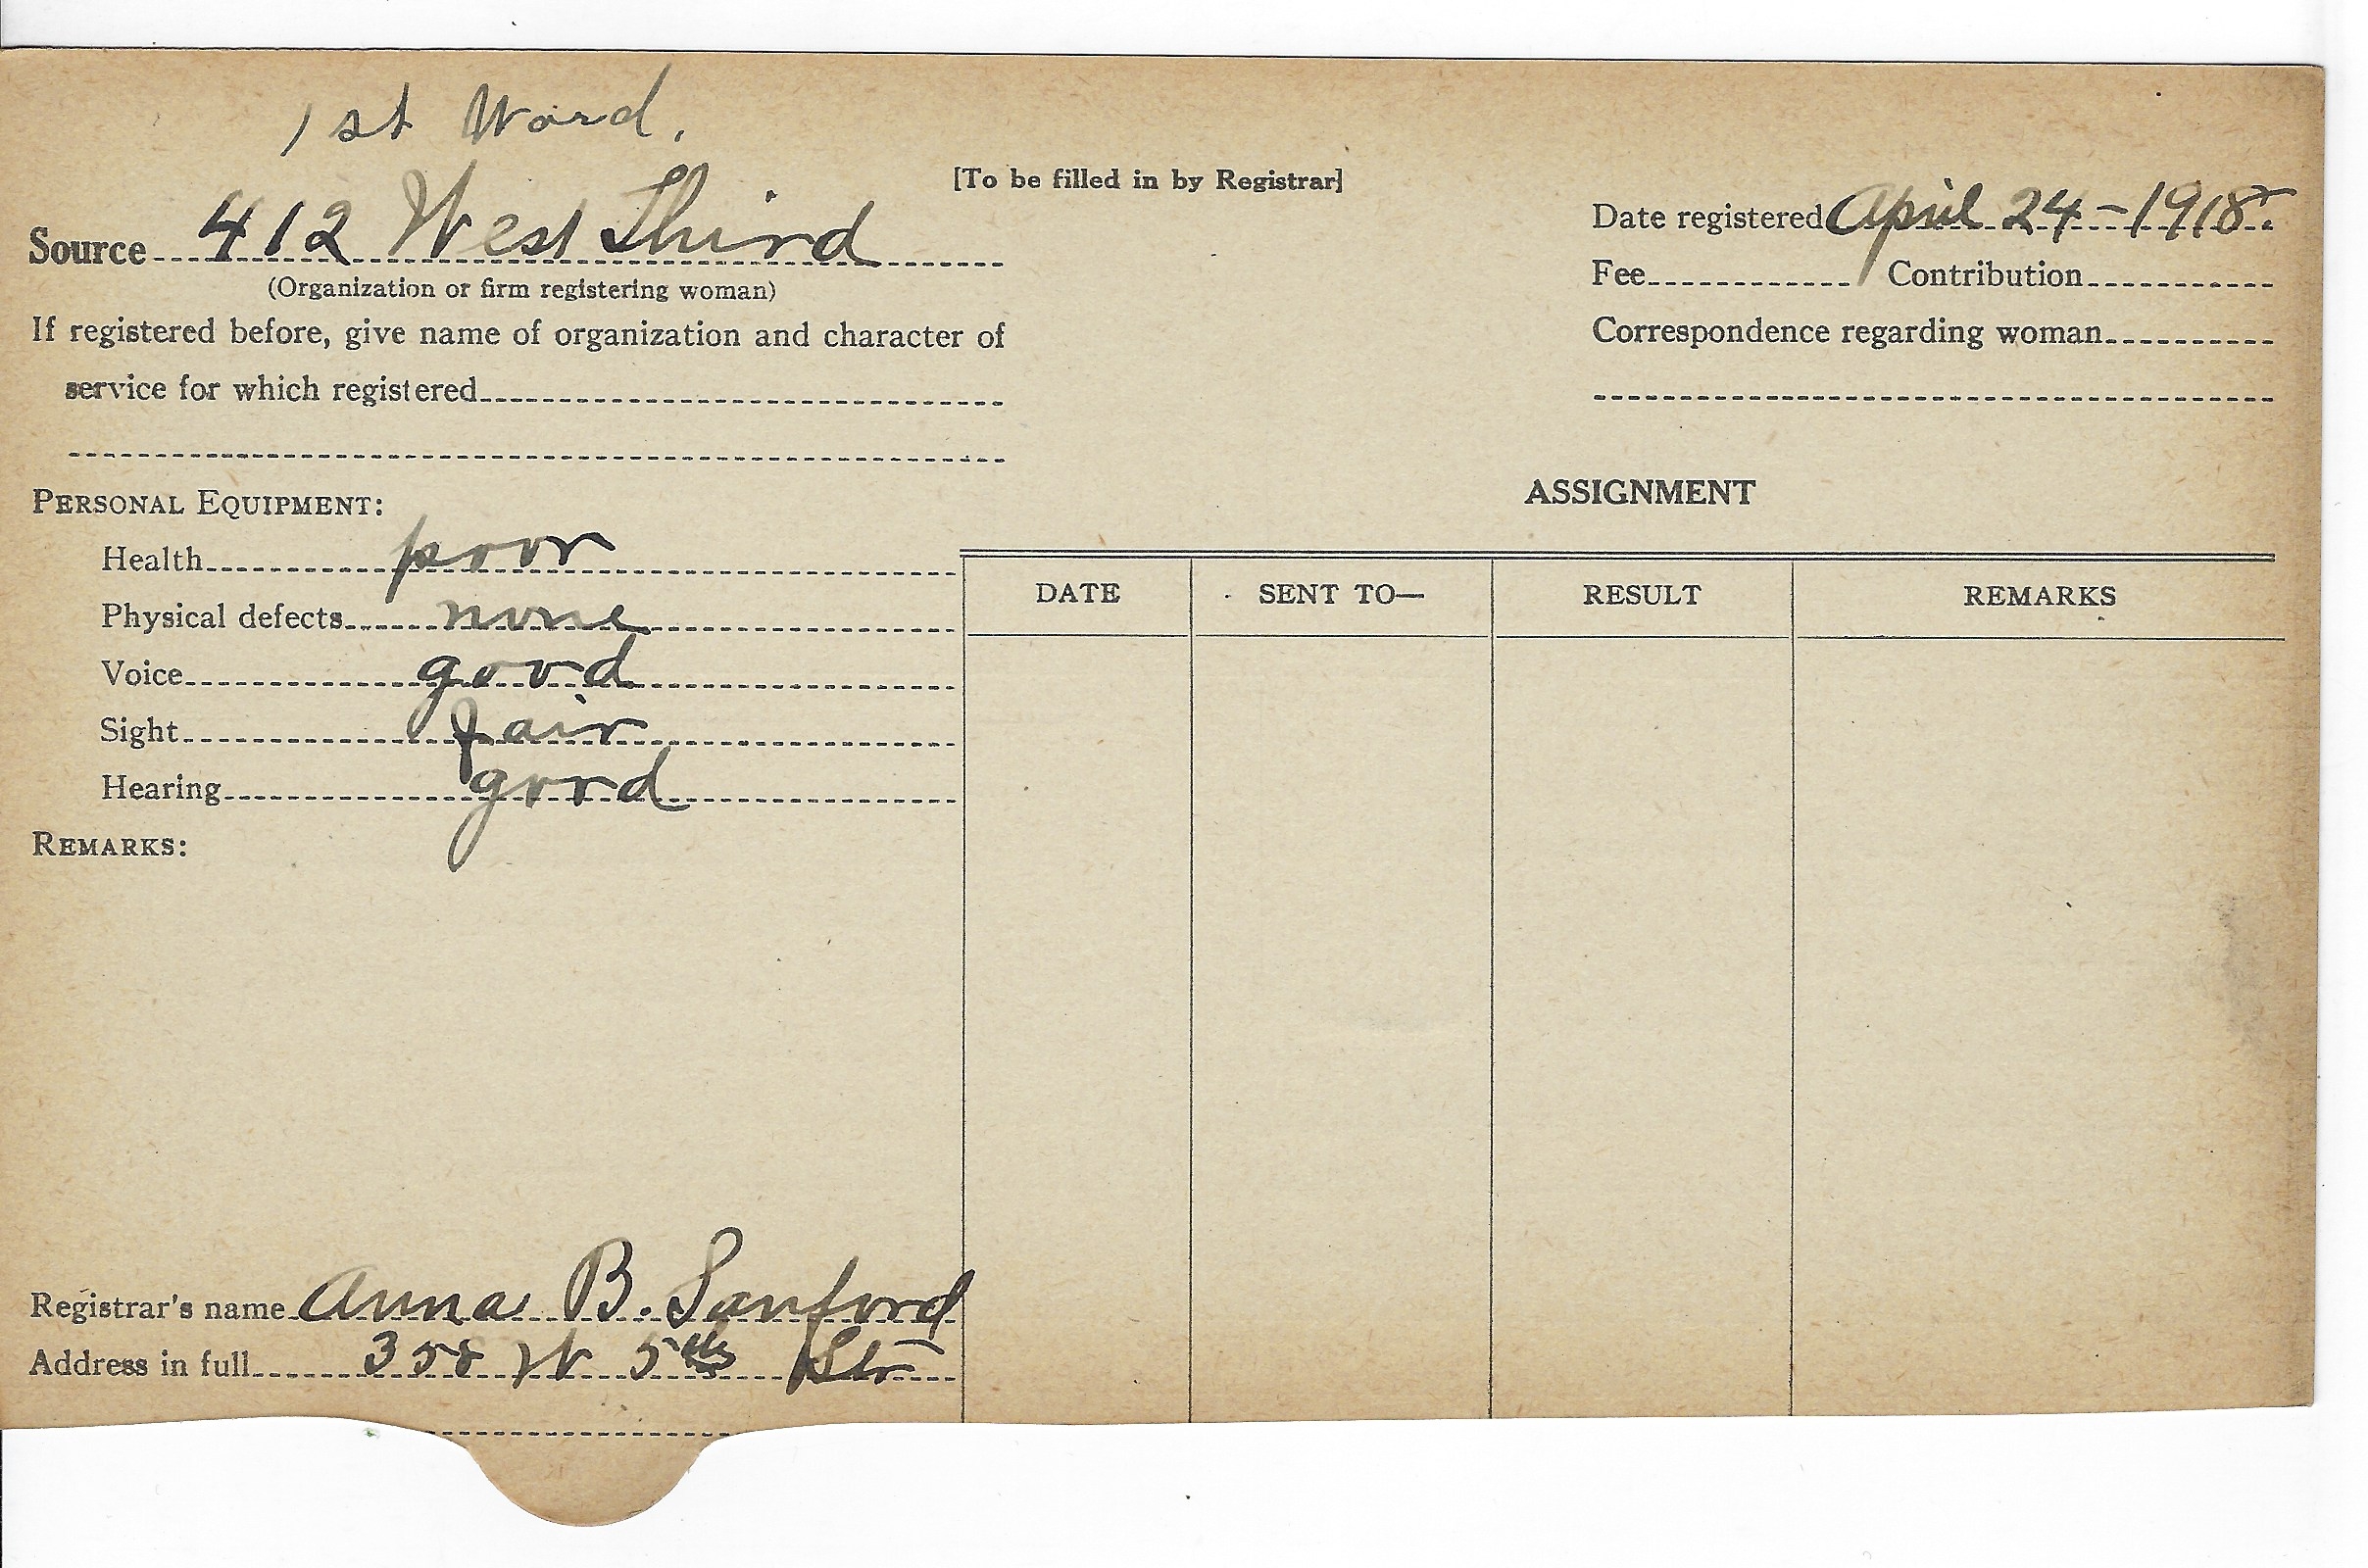 1st Ward.
[To be filled in by Registrar]
Source 412 West Third
(Organization or firm registering woman)
If registered before, give name of organization and character of
service for which registered
Date registered April 24-1918.
Fee Contribution
Correspondence regarding woman
PERSONAL EQUIPMENT:
Health poor
Physical defects none
Voice good
Sight fair
Hearing good
REMARKS:
ASSIGNMENT
DATE SENT TO— RESULT REMARKS
Registrar's name Anna B. Sanford
Address in full 358 W 5th Str